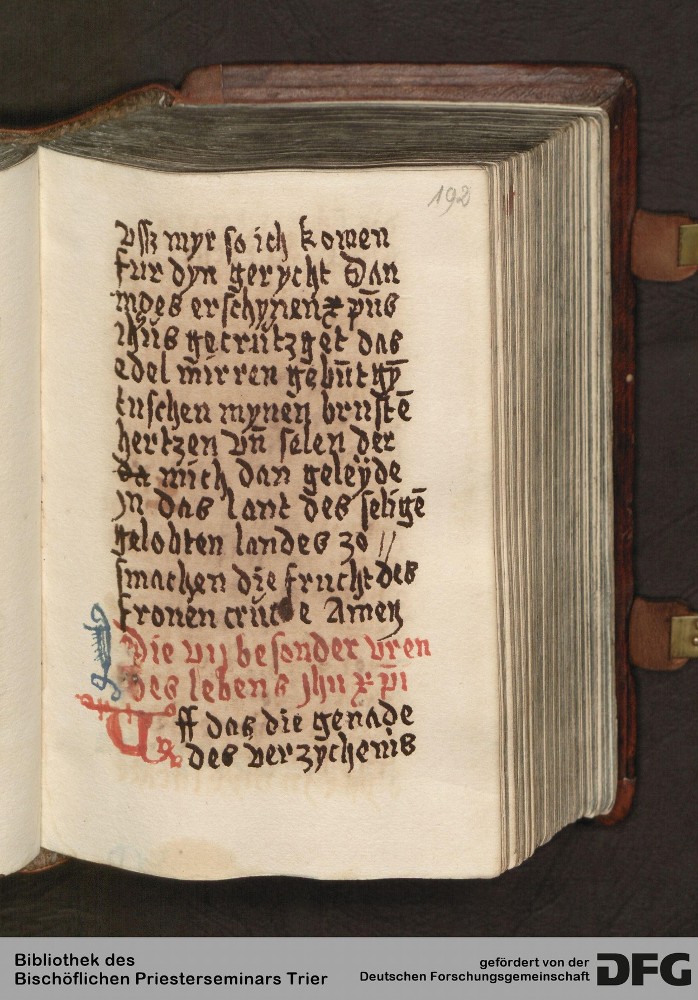 192
vssz myr so ich komen
fur dyn gerycht Dan
moes erschynen xp̄us
ihūs gecrützget das
edel mirren gebūt
tuschen mynen brustē
hertzen vn̄ selen der
da mich dan geleyde
jn das lant des seligē
gelobten landes zo //
smachen die frucht des
fronen crutze Amen
Die vij besonder vren
des lebens jhu xp̄i
Uff das die genade
des verzychenis
Bibliothek des
Bischöflichen Priesterseminars Trier
gefördert von der
Deutschen Forschungsgemeinschaft
DFG